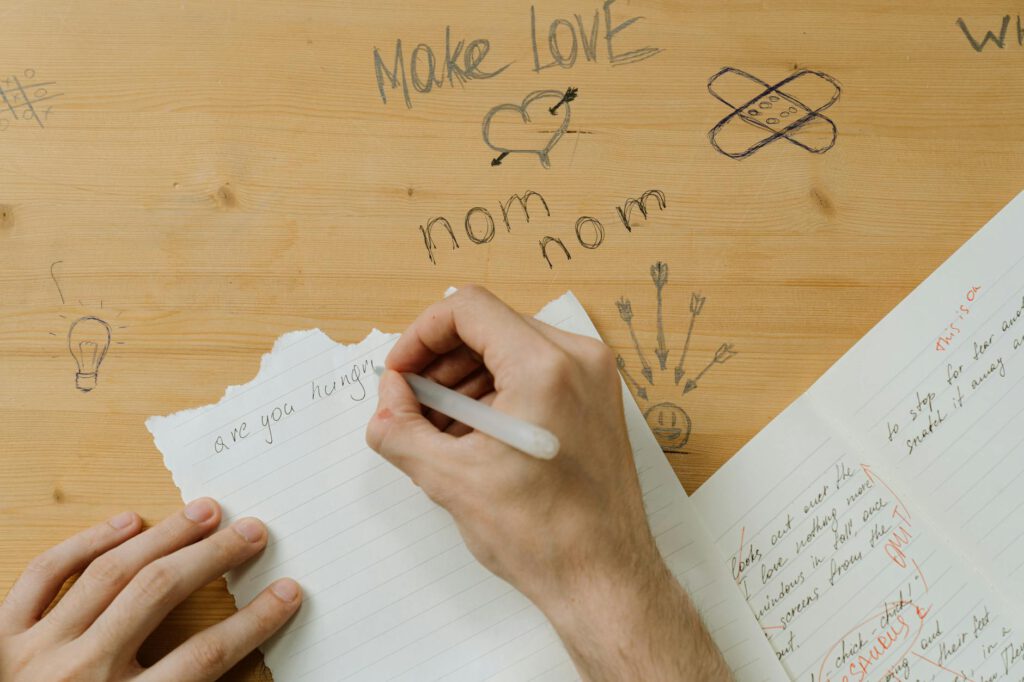 Make LOVE
WH
nom
nom
are you hungry
This is on
to stop for fear
snatch it away
looks out over the
I love nothing more
windows in fall and
screens from the
out.
OMIT
chick chick!"
and
their feet
in a